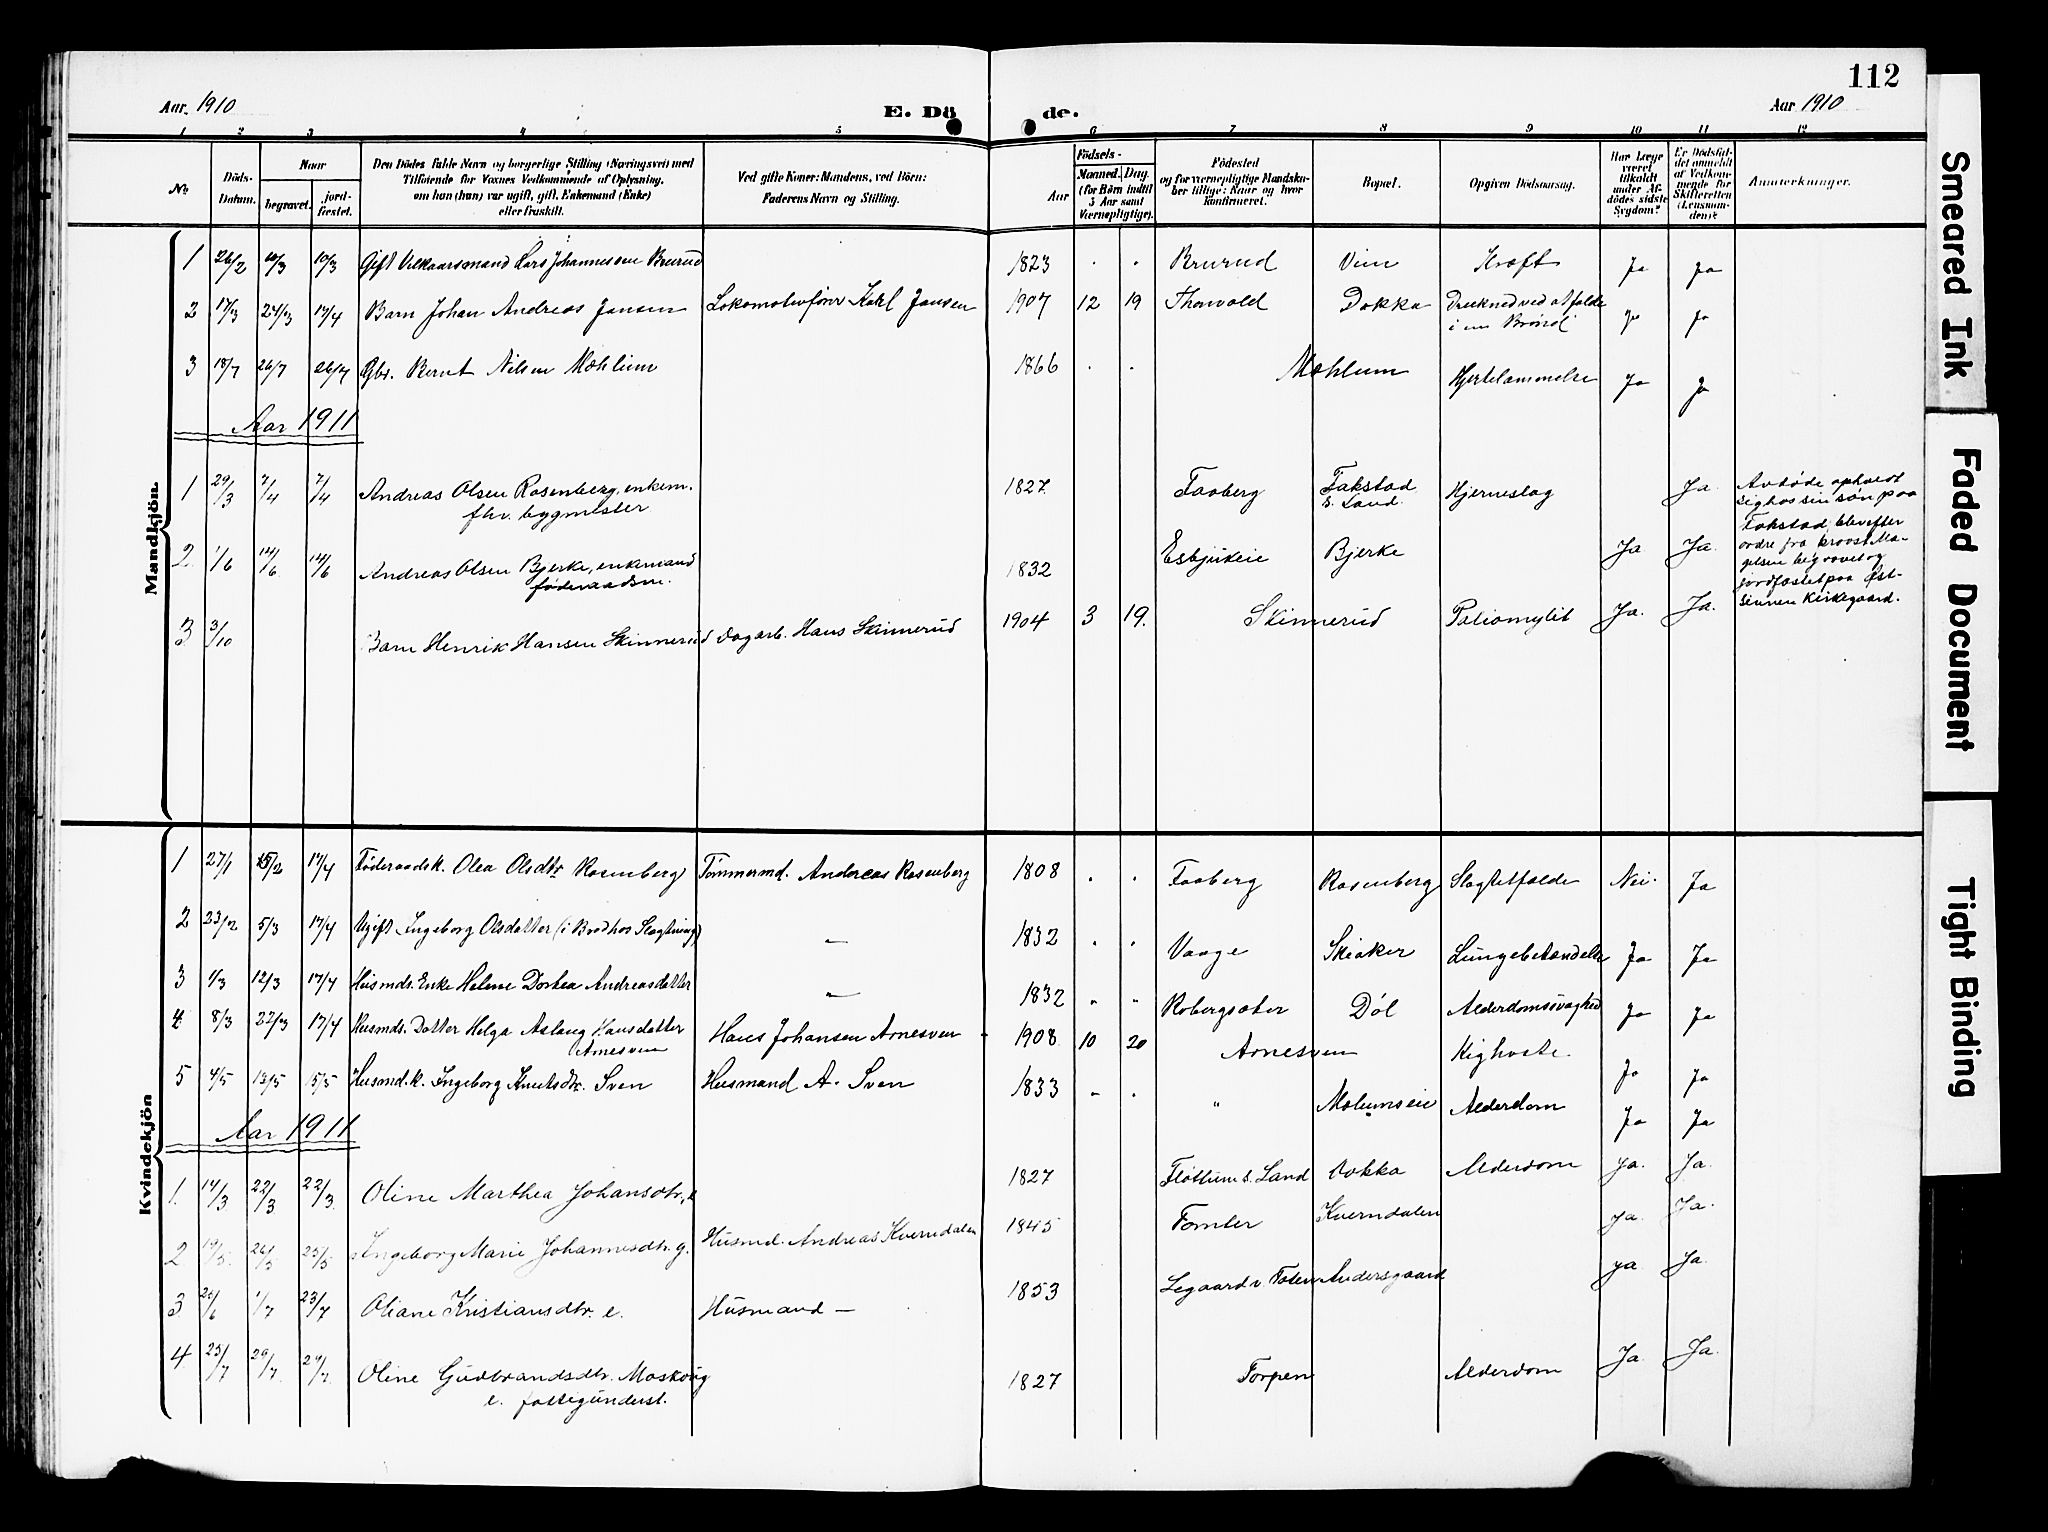 112
Aar 1910
E. Dö
de.
Aar 1910
1 2 3 4 5 6 7 8 9 10 11 12
No
Döds-Datum.
Naar
begravet.
jord-fæstet.
Den Dödes fulde Navn og borgerlige Stilling (Næringsvei) med
Tilföiende for Voxnes Vedkommende af Oplysning,
om han (hun) var ugift, gift, Enkemand (Enke)
eller fraskilt.
Ved gifte Koner: Mandens, ved Börn:
Faderens Navn og Stilling.
Födsels-
Aar
Maaned. Dag
(for Börn indtil
3 Aar samt
Værnepligtige).
Födested
og for værnepligtige Mandskaber tillige: Naar og hvor
konfirmeret.
Bopæl.
Opgiven Dödsaarsag.
Har Læge
været
tilkaldt
under Afdödes sidste
Sygdom?
Er Dödsfaldet anmeldt
af Vedkommende for
Skifteretten
(Lensmanden)?
Anmærkninger.
Mandkjön.
1 26/2 10/3 10/3 Gift Vilkaarsmand Lars Johannessen Brurud 1823 " " Brurud Vim Kræft Ja Ja
2 17/3 24/3 17/4 Barn Johan Andreas Jansen Lokomotivförer Karl Jansen 1907 12 19 Thorvold Dokka Drukned ved at falde
i en Brönd Ja Ja
3 18/7 26/7 26/7 Gbr. Bernt Nilsen Mæhlum 1866 " " Mæhlum Hjertelammelse Ja Ja
Aar 1911
1 29/3 7/4 7/4 Andreas Olsen Rosenberg, enkem.
fhv. bygmester 1827 Faaberg Fakstad
S. Land. Hjerneslag Ja Avdøde opholdt
sig hos sin søn paa
Fakstad, blev efter
ordre fra provst Ma-
gelsen begravet og
jordfæstet paa Øst-
sinnen Kirkegaard.
2 1/6 14/6 14/6 Andreas Olsen Bjerke, enkemand
føderaadsm. 1832 Bjerke Ja Ja
3 3/10 Barn Henrik Hansen Skinnerud Dagarb. Hans Skinnerud 1904 3 19. Skinnerud Poliomylit Ja. Ja.
Kvindekjön
1 27/1 15/2 17/4 Föderaadsk. Olea Olsdtr Rosenberg Tömmermd. Andreas Rosenberg 1808 " " Faaberg Rosenberg Slagtilfælde Nei. Ja
2 23/2 5/3 17/4 Ugift Ingeborg Olsdatter (i Brødhos Slagtning) — 1832 " " Vaage Skiaker Lungebetændelse Ja Ja
3 1/3 12/3 17/4 Husmds. Enke Helene Dorthea Andreasdatter — 1832 " " Robergsæter Döl Alderdomssvaghed Ja Ja
4 8/3 22/3 17/4 Husmds. Datter Helga Aslaug Hansdatter
Arnesven Hans Johansen Arnesven 1908 10 20 Arnesven Kighoste. Ja Ja
5 4/5 13/5 15/5 Husmd. k. Ingeborg Knutsdtr. Sven Husmand A. Sven 1833 " " " Mælumseie Alderdom Ja Ja
Aar 1911
1. 14/3 22/3 22/3. Oline Marthea Johansdtr., e 1827 S. Land Dokka Alderdom Ja. Ja.
2 19/5. 26/5 25/5 Ingeborg Marie Johannesdtr. g. Husmd. Andreas Kverndalen 1845 Tomter Kverndalen Ja. Ja.
3 26/6 1/7 23/7 Oliane Kristiansdtr. e. Husmand — 1853 Andersgaard Ja Ja.
4 23/7 29/7. 29/7. Oline Gudbrandsdtr. Moskoug
e. fattigunderst. 1827 Torpen Alderdom Ja. Ja.
Smeared Ink
Faded Document
Tight Binding